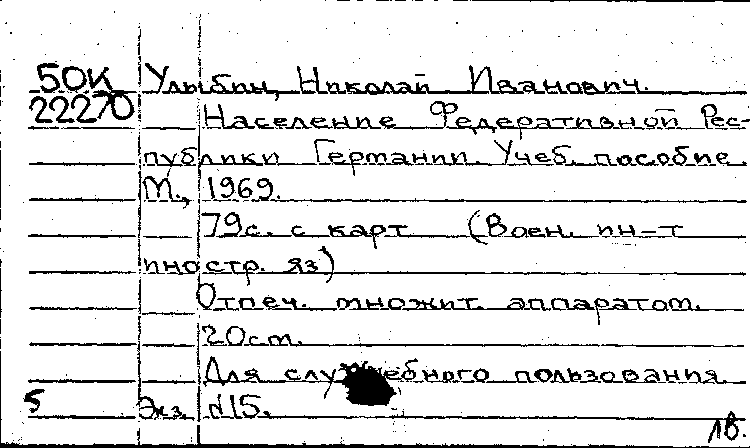 50К Улыбин, Николай Иванович.
22270 Население Федеративной Рес-
публики Германии. Учеб. пособие.
М., 1969.
79с. с карт (Воен. ин-т
иностр. яз)
Отпеч. множит. аппаратом.
20см.
Для служебного пользования
5 Экз. №15.